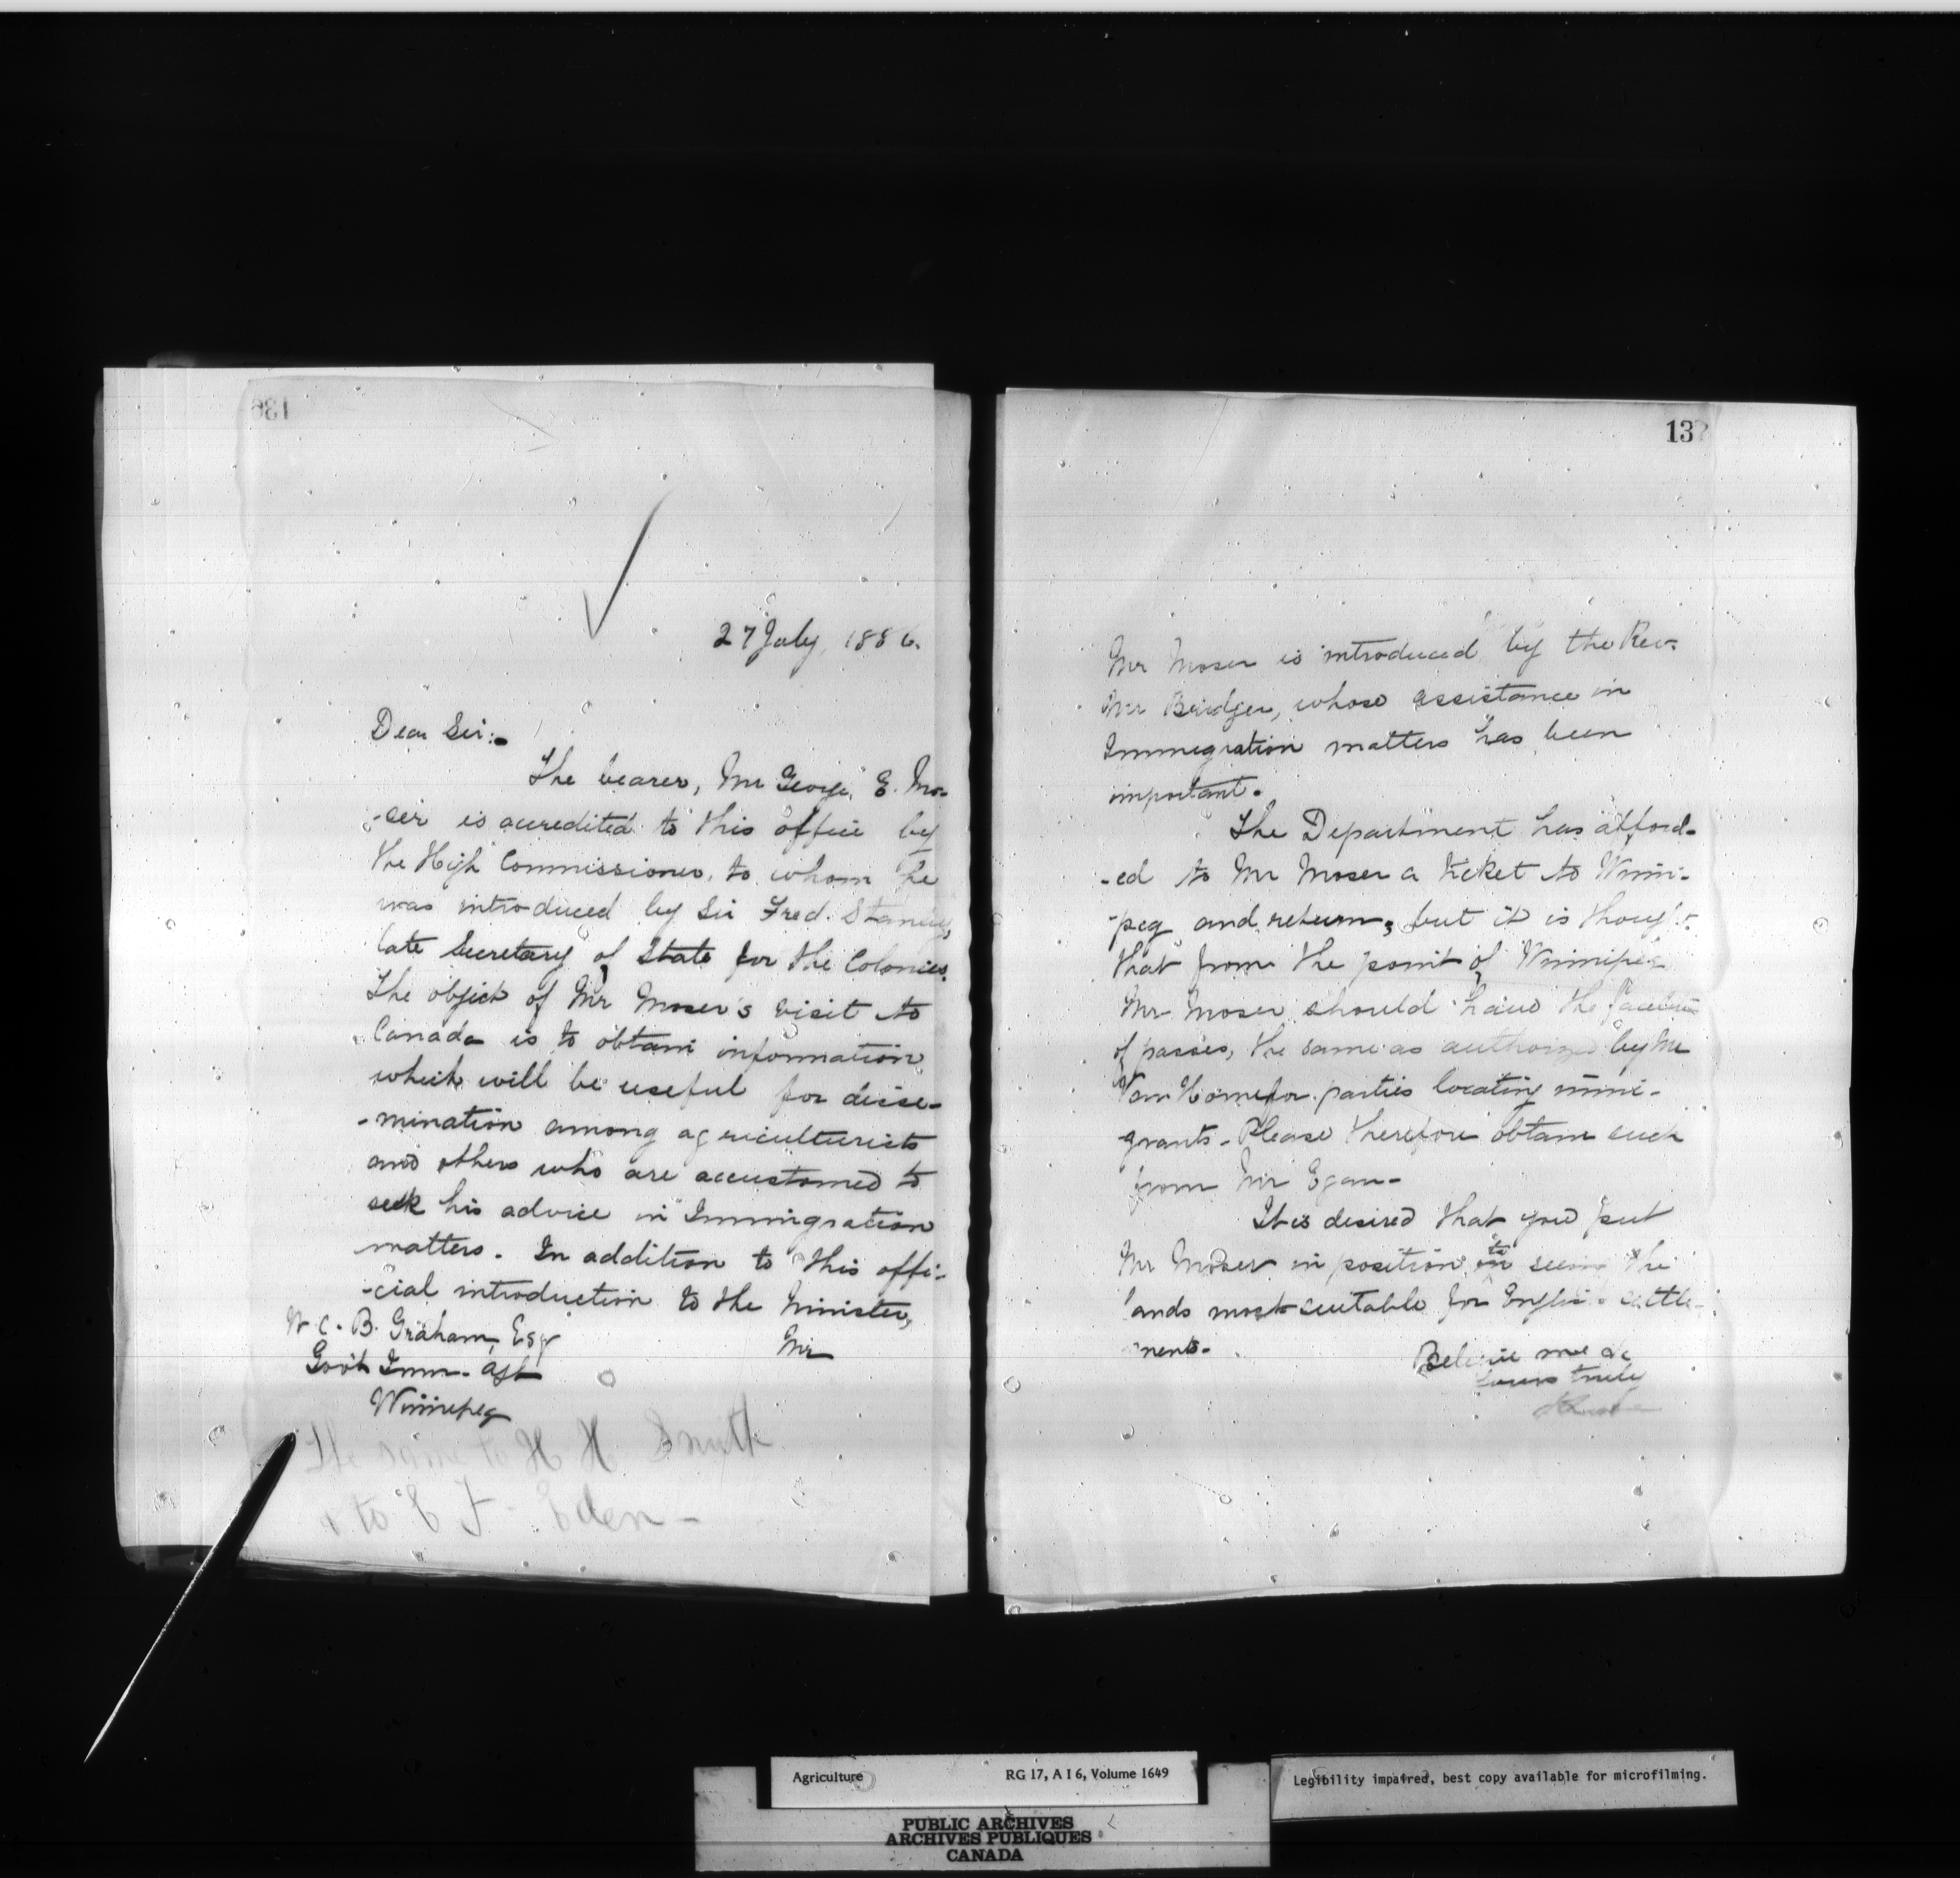 136
27 July, 1886.
Dear Sir:-
The bearer, Mr George E. Mo-
-ser is accredited to this office by
the High Commissioner, to whom he
was introduced by Sir Fred. Stanley,
late Secretary of State for the Colonies.
The object of Mr Moser's visit to
Canada is to obtain information
which will be useful for disse-
-mination among agriculturists
and others who are accustomed to
seek his advice in Immigration
matters. In addition to this offi-
-cial introduction to the Minister,
Mr
W. C. B. Graham, Esq
Gov't Imm. Agt
Winnipeg
The same to H H Smith
& to E F. Eden -
137
Mr Moser is introduced by the Rev.
Mr Bridger, whose assistance in
Immigration matters has been
important.
The Department has afford-
-ed to Mr Moser a ticket to Winni-
-peg and return, but it is thought
that from the point of Winnipeg
Mr Moser should have the facilities
of passes, the same as authorized by Mr
Van Horne for parties locating immi-
grants. Please therefore obtain such
from Mr Egan -
It is desired that you put
Mr Moser in position to seeing the
lands most suitable for English settle-
ments.
Believe me dr
Yours truly
Agriculture RG 17, A I 6, Volume 1649
Legibility impaired, best copy available for microfilming.
PUBLIC ARCHIVES
ARCHIVES PUBLIQUES
CANADA